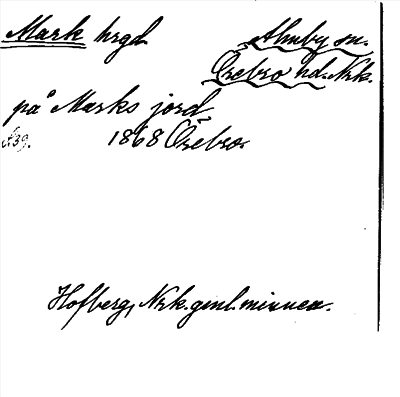 Mark hrgd
Almby sn.
Örebro hd. Nrk.
på Marks jord
s. 39.
1868 Örebro.
Hofberg, Nrk. gml. minnen.